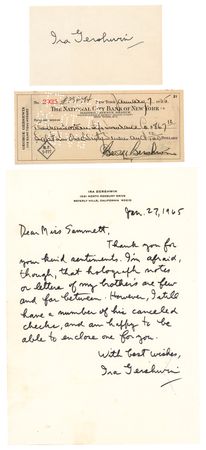 Ira Gershwin
No. 2023
New York January 7, 1930
The National City Bank of New York
George Gershwin
IRA GERSHWIN
1021 NORTH ROXBURY DRIVE
BEVERLY HILLS, CALIFORNIA 90210
Jan. 27, 1965
Dear Miss Sammett,
Thank you for
your kind sentiments. I'm afraid,
though, that holograph notes
or letters of my brothers are few
and far between. However, I still
have a number of his canceled
checks, and am happy to be
able to enclose one for you.
With best wishes,
Ira Gershwin